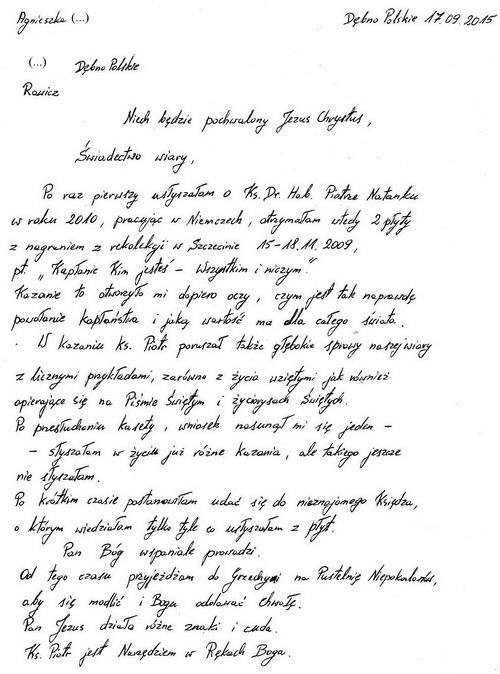 Agnieszka (...) Dębno Polskie 17.09.2015
(...) Dębno Polskie
Rawicz
Niech będzie pochwalony Jezus Chrystus,
Świadectwo wiary,
Po raz pierwszy usłyszałam o Ks. Dr. Hab. Piotrze Natanku
w roku 2010, pracując w Niemczech, otrzymałam wtedy 2 płyty
z nagraniem z rekolekcji w Szczecinie 15-18.11.2009,
pt. "Kapłanie Kim jesteś - Wszystkim i niczym."
Kazanie to otworzyło mi dopiero oczy, czym jest tak naprawdę
powołanie kapłaństwa i jaką wartość ma dla całego świata.
W kazaniu ks. Piotr poruszał także głębokie sprawy naszej wiary
z licznymi przykładami, zarówno z życia wziętymi jak również
opierające się na Piśmie Świętym i życiorysach Świętych.
Po przesłuchaniu kasety, wniosek nasunął mi się jeden -
- słyszałam w życiu już różne kazania, ale takiego jeszcze
nie słyszałam.
Po krótkim czasie postanowiłam udać się do nieznajomego Księdza,
o którym wiedziałam tylko tyle co usłyszałam z płyt.
Pan Bóg wspaniale prowadzi.
Od tego czasu przyjeżdżam do Grzechyni na Pustelnię Niepokalanów,
aby się modlić i Bogu oddawać chwałę.
Pan Jezus działa różne znaki i cuda.
Ks. Piotr jest Narzędziem w Rękach Boga.